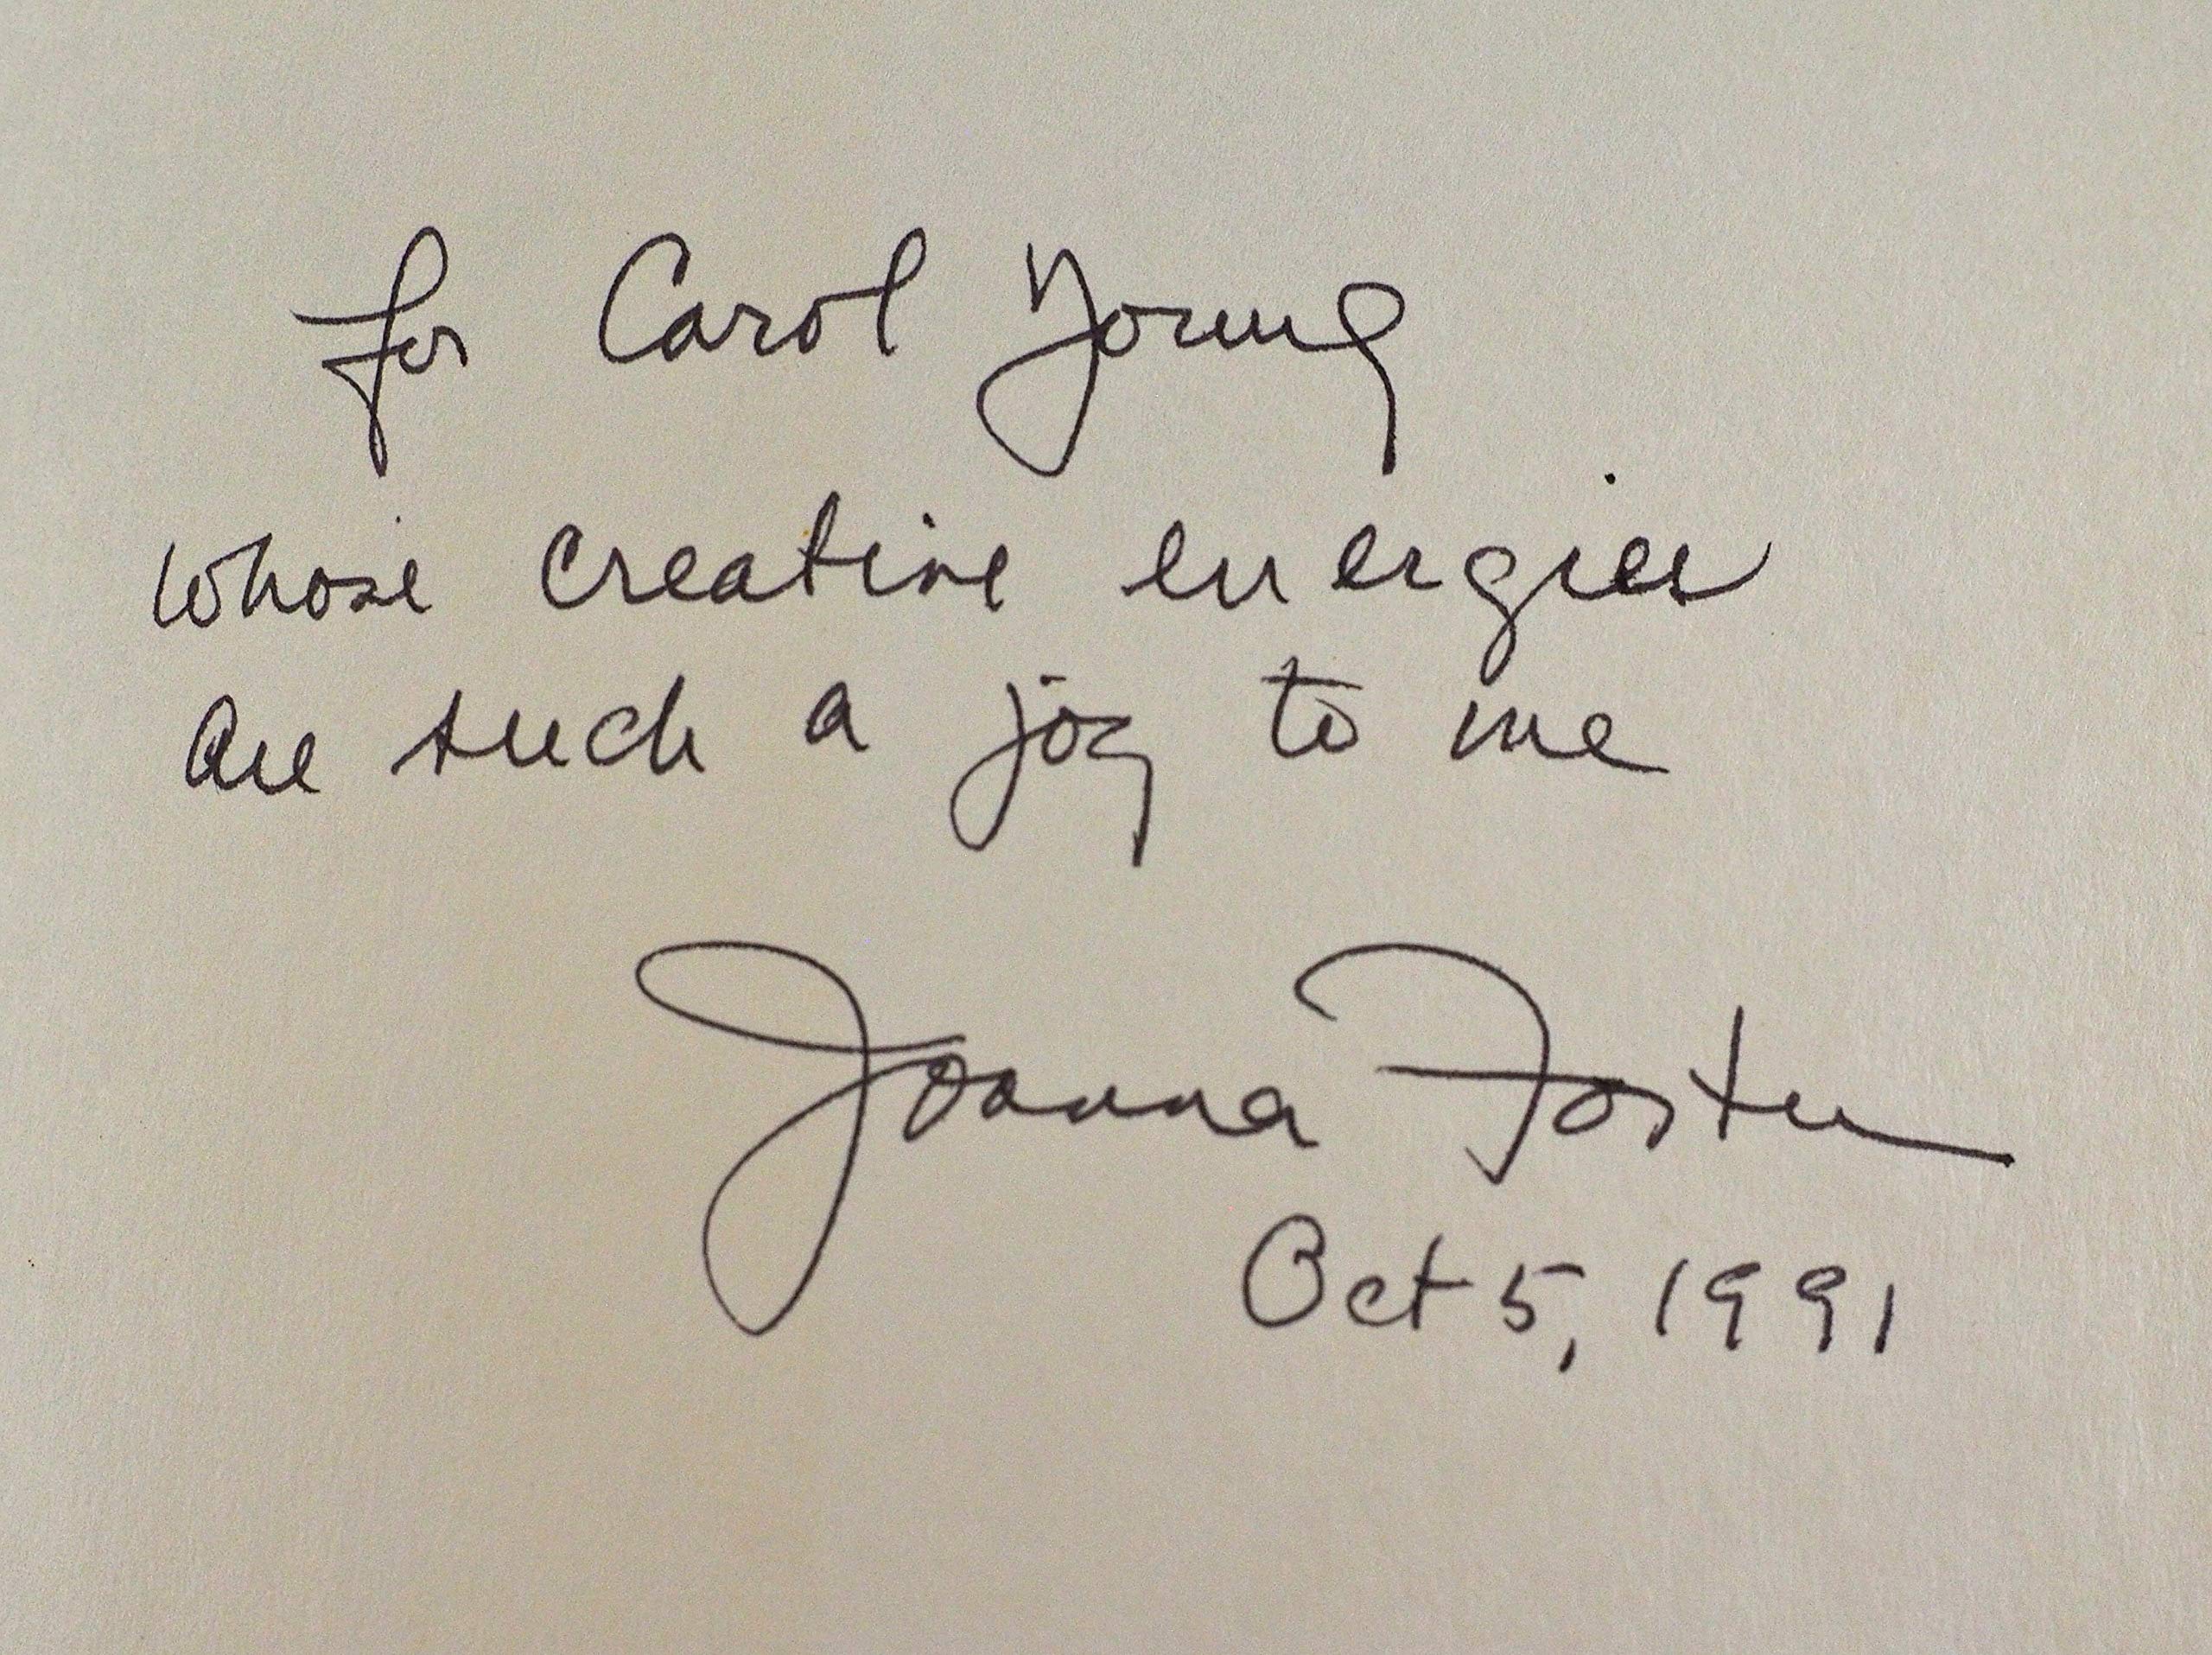 for Carol Young
whose creative energies
are such a joy to me
Joanna Foster
Oct 5, 1991